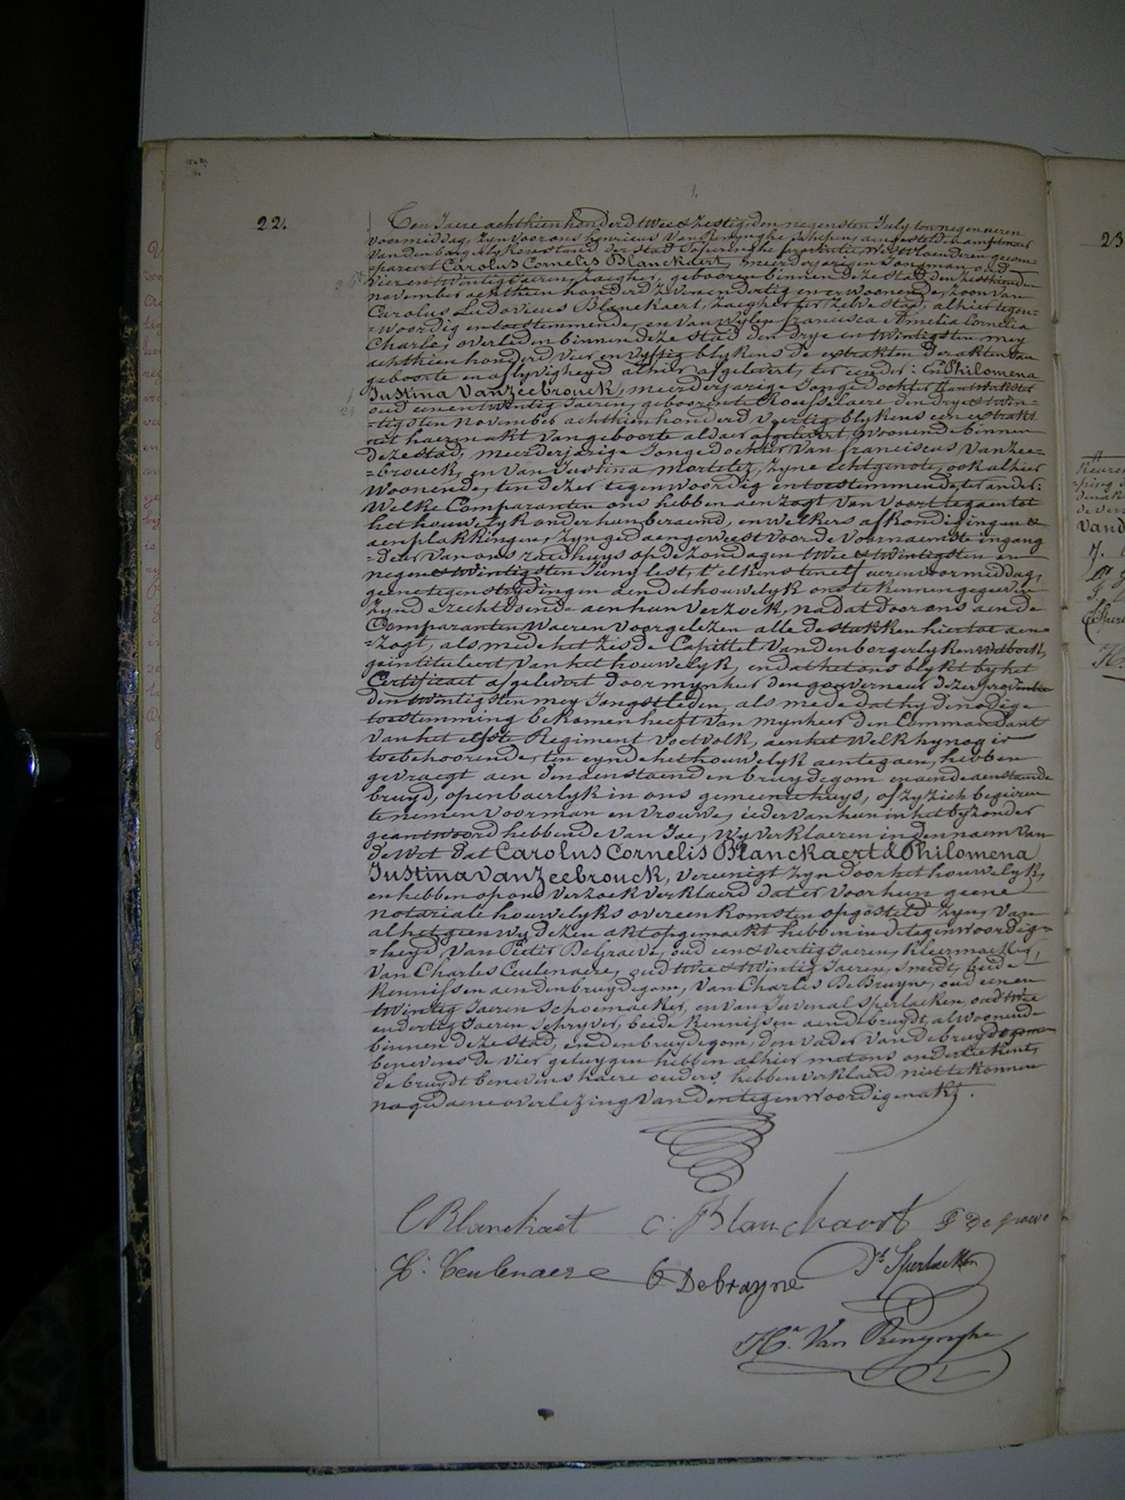 22.
Ten Jaere achthien honderd twee & zestig, den negensten July ten negen ueren
voormiddag, zyn voor ons henricus Van Renynghe schepene aengesteld als amptenaer
van den burgerlyken stand der stad Poperinghe provincie Westvlaenderen gecom-
=pareert Carolus Cornelis Blanckaert, meerderjarigen jongman oud
vier en twintig jaeren, zaegher, gebooren binnen deze stad den zesthienden
november achthien honderd zeven en dertig en er woonende, zoon van
Carolus Ludovicus Blanckaert, zaegher ter zelve stad, alhier tegen=
=woordig en toestemmende, en van wylen francisca Amelia Cornelia
Charle, overleden binnen deze stad den drye en twintigsten mey
achthien honderd vier en vyftig blykens de extrakten der akten van
geboorte en aflyvigheyd alhier afgelevert, ter eender: En Philomena
Justina VanZeebrouck, meerderjarige Jonge dochter
oud een en twintig jaeren, geboren te Rousselaere den drye & twin-
=tigsten November achthien honderd veertig blykens een extrakt
uit haeren akt van geboorte aldaer afgelevert, woonende binnen
deze stad, meerderjarige Jonge dochter van franciscus VanZee=
=brouck, en van Justina Mortelez, zyne echtgenote, ook alhier
woonende, ten dezer tegenwoordig en toestemmende, ter ander:
Welke Comparanten ons hebben aenzogt van voort te gaen tot
het houwelyk onder hun beraemd, en welkers afkondigingen &
aenplakkingen zyn gedaen geweest voor de voornaemste ingang
=deur van ons raedhuys op de zondagen twee & twintigsten en
negen & twintigsten Juny lest, t'elkens ten elf ueren voormiddag,
geene tegenstrydingen aen dit houwelyk ons te kennen gegeven
zynde rechtdoende aen hun verzoek, na dat door ons aen de
Comparanten waeren voorgelezen alle de stukken hier toe aen=
=zogt, als mede het zesde Capittel van den borgerlyken wetboek,
geintituleert van het houwelyk, en dat het ons blykt by het
Certificaet afgelevert door mynheer den gouverneur dezer provintie
den twintigsten mey Jongstleden, als mede dat hy de nodige
toestemming bekomen heeft van mynheer den Commandant
van het elfste Regiment voetvolk, aen het welk hy nog is
toebehoorende, ten eynde het houwelyk aentegaen, hebben
gevraegt aen den aenstaenden bruydegom en aen de aenstaende
bruyd, openbaerlyk in ons gemeente huys, of zy zich begeiren
te nemen voor man en vrouwe, ieder van hun in het byzonder
geantwoord hebbende van Jae, Wy verklaeren in den naem van
de Wet dat Carolus Cornelis Blanckaert & Philomena
Justina VanZeebrouck, vereenigt zyn door het houwelyk,
en hebben op ons verzoek verklaerd dat er voor hun geene
notariale houwelyks overeenkomsten opgesteld zyn, Van
al het geen wy dezen akt opgemaekt hebben in de tegenwoordig=
=heyd van Pieter DeGraeve, oud een & veertig jaeren, kleermaeker,
van Charles Ceulenaere, oud twee & twintig jaeren, smedt, beide
kennissen aen den bruydegom, van Charles DeBruyne, oud een en
twintig jaeren schoenmaeker, en van Juvenal Sperlaeken oud twee
en dertig jaeren schryver, beide kennissen aen de bruydt, al woonende
binnen deze stad, en den bruydegom, den vader van de bruydegom
benevens de vier getuygen hebben alhier met ons onderteekent,
de bruydt benevens haere ouders hebben verklaerd niet te konnen
na gedaene overlezing van den tegenwoordigen akt.
CBlanckaet C. Blanckaert P De graeve
C. Ceulenaere C Debruyne Jl Sperlaeken
Hri Van Renynghe
23
vand